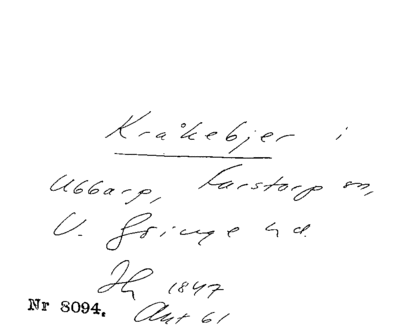 Kråkebjer i
Ubbarp, Farstorp sn,
V. Göinge hd.
Jh 1847
Nr 8094. Akt 61